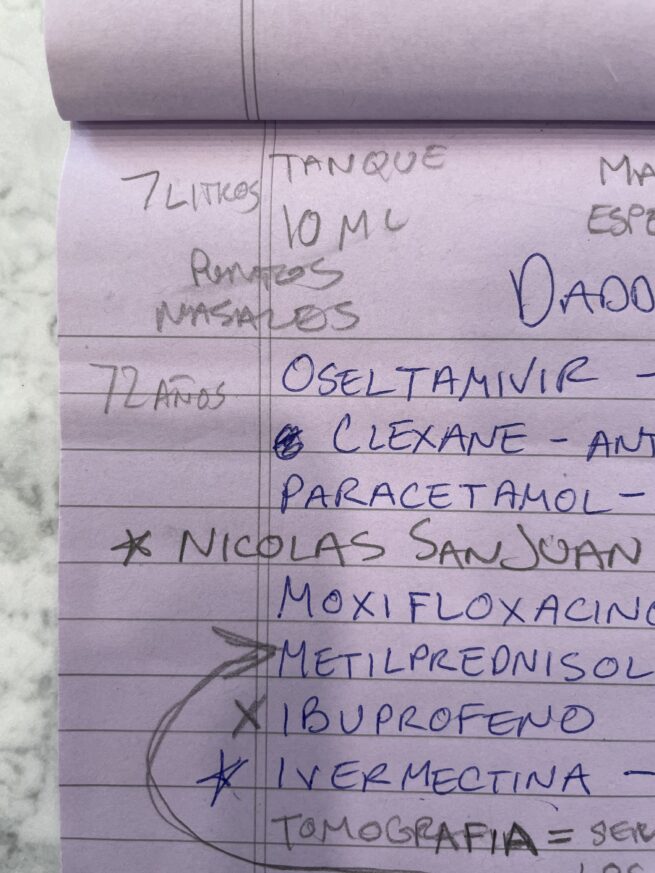 TANQUE MA
7 LITROS
10 ML ESPE
PUNTOS
NASALES
DADD
72 AÑOS OSELTAMIVIR -
CLEXANE - ANT
PARACETAMOL -
* NICOLAS SANJUAN
MOXIFLOXACINO
METILPREDNISOL
X IBUPROFENO
* IVERMECTINA -
TOMOGRAFIA = SER